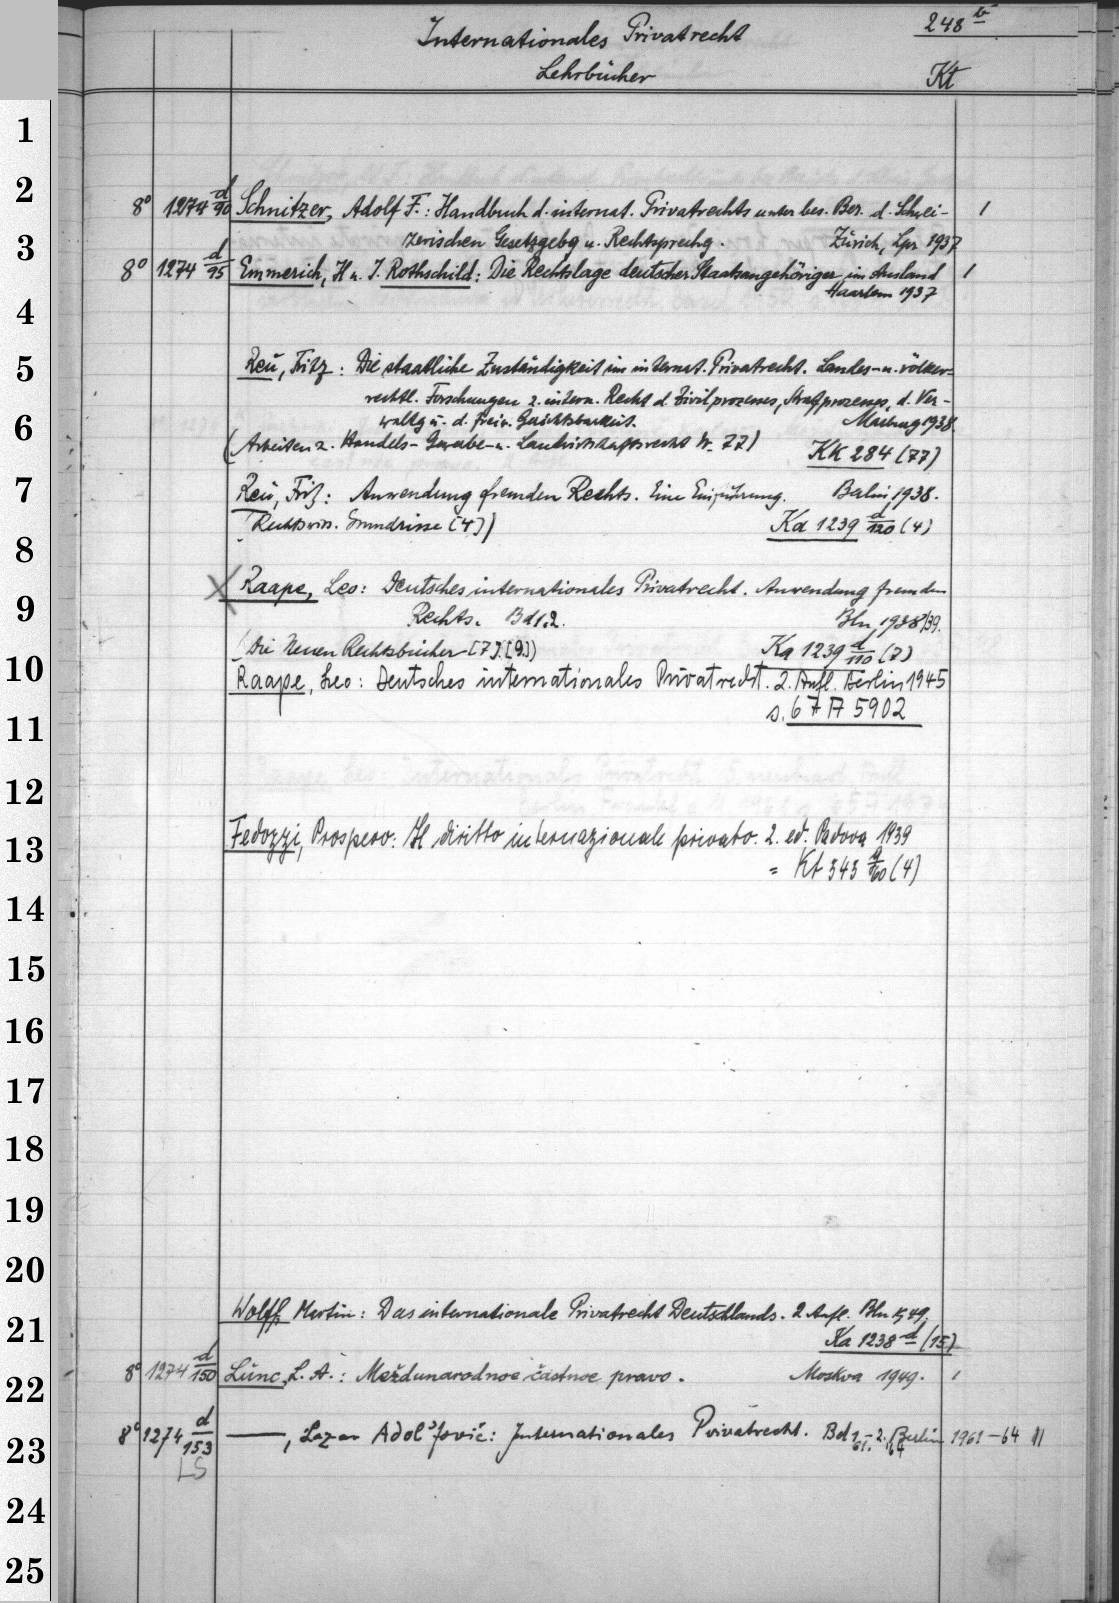 248 b
Internationales Privatrecht
Lehrbücher
Kt
1
2
8° 1274 d/90 Schnitzer, Adolf F.: Handbuch d. internat. Privatrechts unter bes. Ber. d. Schwei-
zerischen Gesetzgebg u. Rechtsprechg. Zürich, Lpz 1937
3
8° 1274 d/95 Emmerich, H u. J. Rothschild: Die Rechtslage deutscher Staatsangehöriger im Ausland
Haarlem 1937
4
5
Reu, Fritz: Die staatliche Zuständigkeit im internat. Privatrecht. Landes- u. völker-
rechtl. Forschungen z. intern. Recht d. Zivilprozesses, Strafprozesses, d. Ver-
waltg u. d. freiw. Gerichtsbarkeit. Marburg 1938
6
(Arbeiten z. Handels- Gewerbe- u. Landwirtschaftsrecht Nr. 77) KK 284 (77)
7
Reu, Fritz: Anwendung fremden Rechts. Eine Einführung. Berlin, 1938.
(Rechtswiss. Grundrisse [4]) Ka 1239 d/120 (4)
8
Raape, Leo: Deutsches internationales Privatrecht. Anwendung fremden
9
Rechts. Bd 1.2. Bln, 1938/39.
(Die Neuen Rechtsbücher [7].[9.]) Ka 1239 d/110 (7)
10
Raape, Leo: Deutsches internationales Privatrecht. 2. Aufl. Berlin 1945
s. 67 A 5902
11
12
13
Fedozzi, Prospero: Il diritto internazionale privato. 2. ed. Padova 1939
= Kt 343 a/60 (4)
14
15
16
17
18
19
20
Wolff, Martin: Das internationale Privatrecht Deutschlands. 2 Aufl. Bln 1949.
21
Ka 1238 d (15)
22
8° 1274 d/150 Lunc, L. A.: Meždunarodnoe častnoe pravo. Moskva 1949.
23
8° 1274 d/153 ———, Lazar Adol'fovič: Internationales Privatrecht. Bd 1.-2. Berlin 1961-64 II
61. 64
LS
24
25